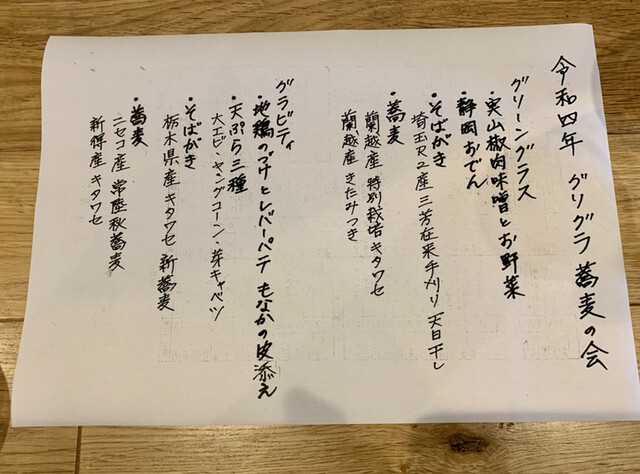 令和四年 グリグラ 蕎麦の会
グリーングラス
・実山椒肉味噌とお野菜
・静岡おでん
・そばがき
埼玉R2産 三芳在来手刈り 天日干し
・蕎麦
蘭越産 特別栽培キタワセ
蘭越産 きたみつき
グラビティ
・地鶏のづけとレバーペテ もなかの皮添え
・天ぷら三種
大エビ・ヤングコーン・芽キャベツ
・そばがき
栃木県産 キタワセ 新蕎麦
・蕎麦
ニセコ産 常陸秋蕎麦
新得産 キタワセ